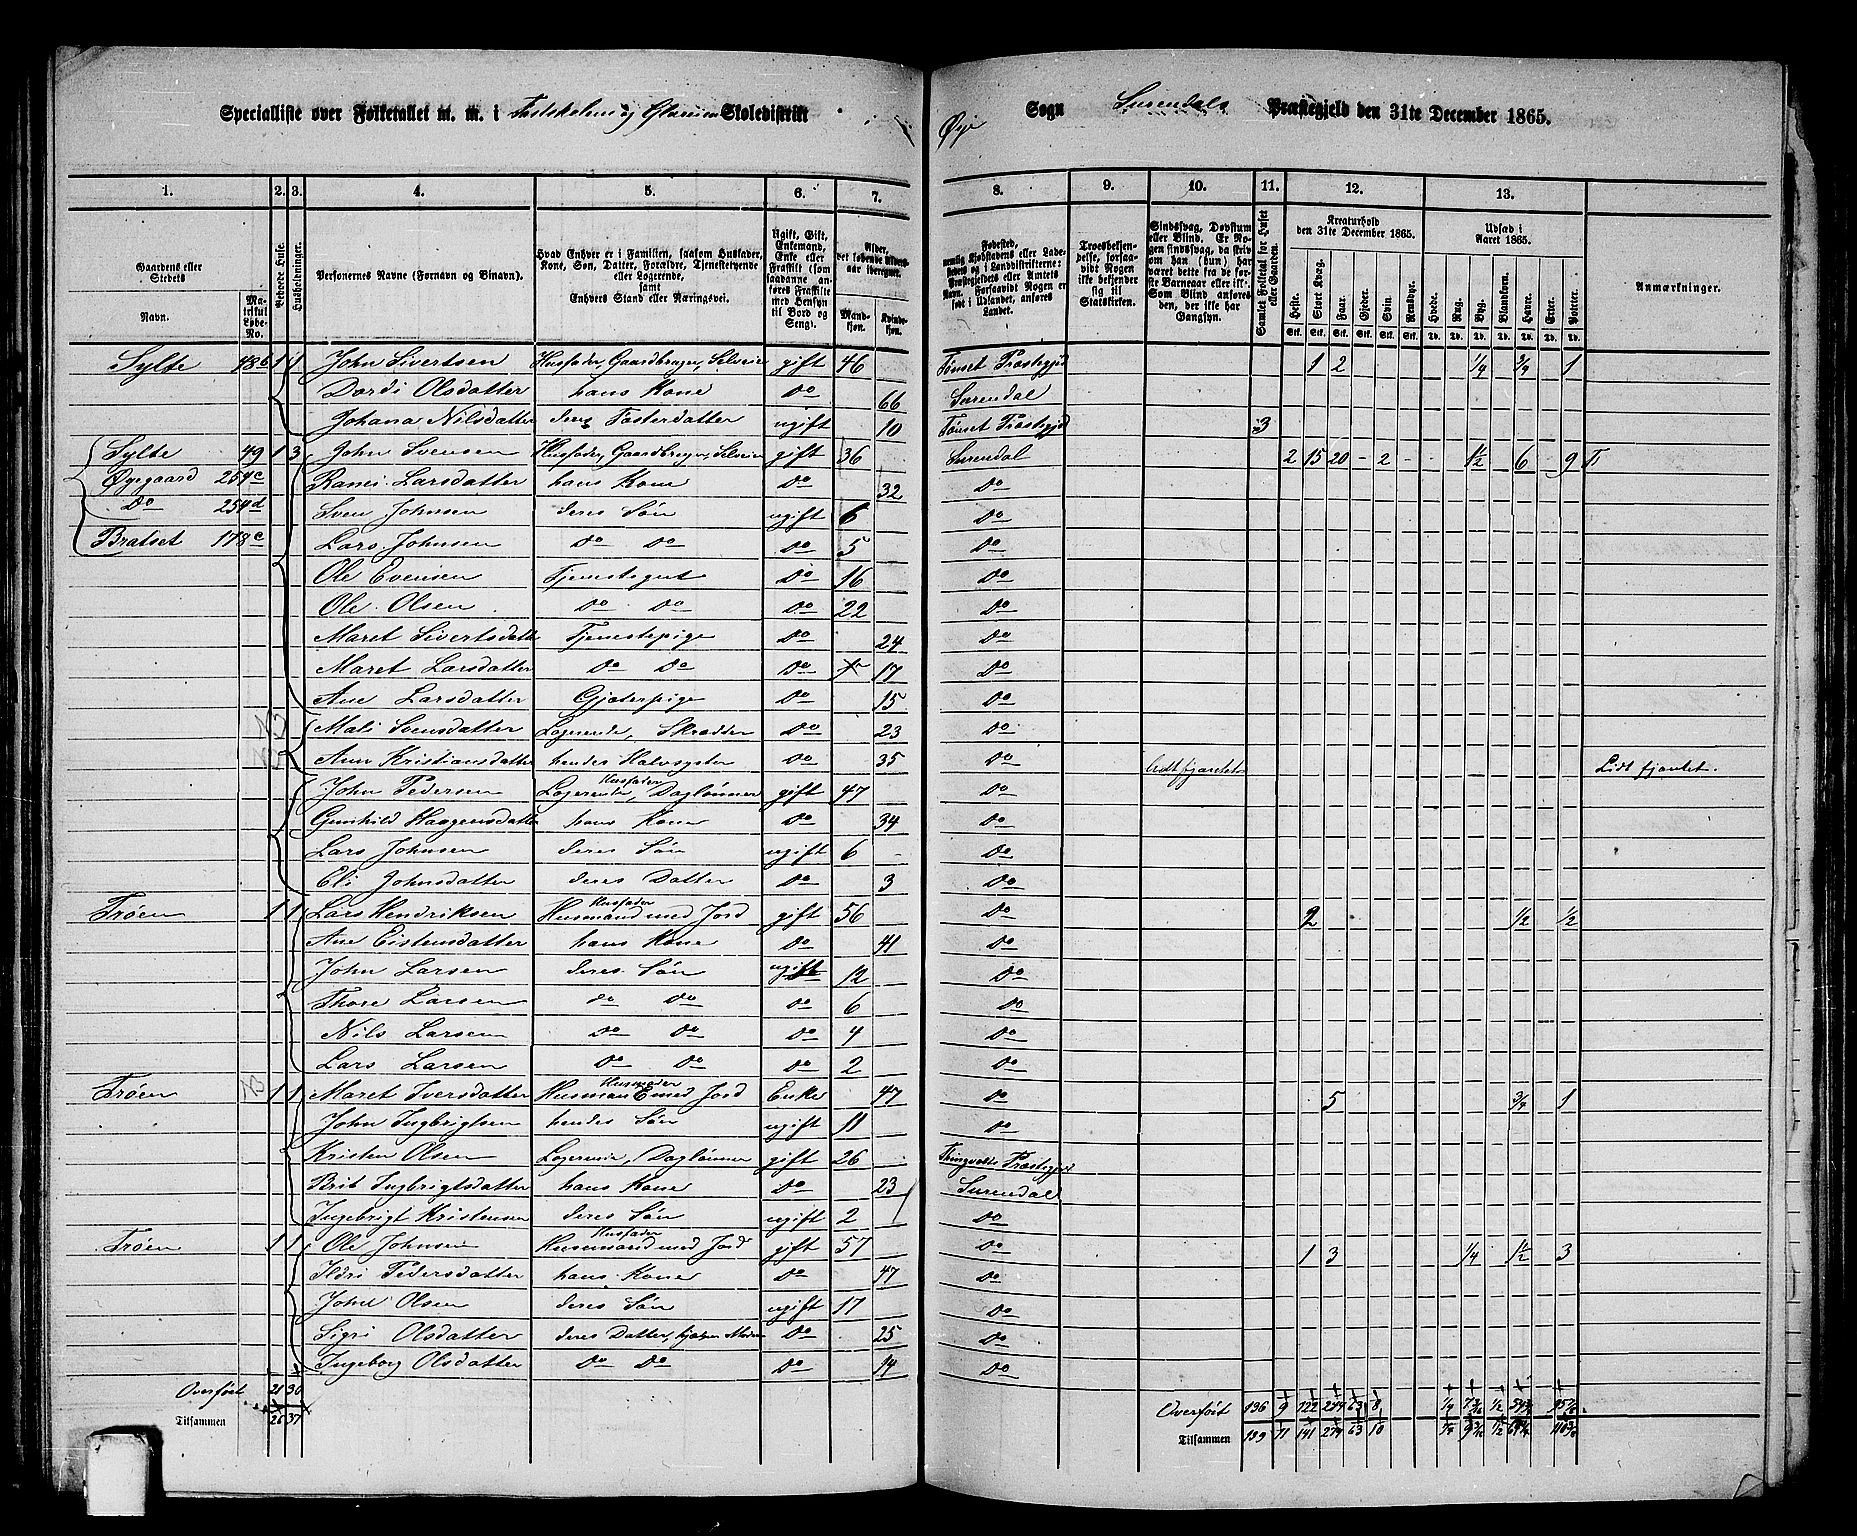 Specialliste over Folketallet m. m. i Skoledistrikt
Øye Sogn Surendals Præstegjeld den 31te December 1865.
1. 2. 3. 4. 5. 6. 7. 8. 9. 10. 11. 12. 13.
Gaardens eller Stedets Navn. Matrikul Løbe-No. Beboede Huse. Husholdninger.
Personernes Navne (Fornavn og Binavn).
Hvad Enhver er i Familien, saasom Husfader, Kone, Søn, Datter, Forældre, Tjenestetyende eller Logerende, samt Enhvers Stand eller Næringsvei.
Ugift, Gift, Enkemand, Enke eller Fraskilt (som saadanne anføres Fraskilte med Hensyn til Bord og Seng).
Alder, det løbende Alders-aar iberegnet. Mand-kjøn. Kvinde-kjøn.
Troesbekjendelse, forsaavidt Nogen ikke bekjender sig til Statskirken.
Sindssvag, Døvstum eller Blind. Er Nogen sindssvag, da skrives om han (hun) har været dette fra de første Barneaar eller ikke. Som Blind anføres den, der ikke har Gangsyn.
Samlet Folketal for Huset eller Gaarden.
Kreaturhold den 31te December 1865. Heste. Stort Kvæg. Faar. Gjeder. Svin. Rensdyr.
Udsæd i Aaret 1865. Hvede. Rug. Byg. Blandkorn. Havre. Erter. Poteter.
Anmærkninger.
Sylte 48b 1 1 John Sivertsen Husfader, Gaardbruger, Selveier gift 46 Tønset Præstegjd 1 2 1/4 3/4 1
Dordi Olsdatter hans Kone do 66 Surendal
Johana Nilsdatter deres Fosterdatter ugift 10 Tønset Præstegjd 3
Sylte 49 1 3 John Svensen Husfader, Gaardbruger, Selveier gift 36 Surendal 2 15 20 - 2 - - 1½ - 6 - 9 T
Øyegaard 254c Ranei Larsdatter hans Kone do 32 do
Do 254d Sven Johnsen deres Søn ugift 6 do
Bratset 178c Lars Johnsen do do do 5 do
Ole Evensen Tjenestegut do 16 do
Ole Olsen do do do 22 do
Maret Sivertsdatter Tjenestepige do 24 do
Maret Larsdatter do do do 17 do
Ane Larsdatter Gjæterpige do 15 do
Mali Svensdatter Logerende, Skrædder do 23 do
Ane Kristiansdatter hendes Halvsyster do 35 do Lidt fjantet Lidt fjantet.
John Pedersen Husfader Logerende, Daglønner gift 47 do
Gunhild Haagensdatter hans Kone do 34 do
Lars Johnsen deres Søn ugift 6 - do
Eli Johnsdatter deres Datter do 3 do
Trøen 1 1 Lars Hendriksen Husfader Husmand med Jord gift 56 do 2 1/2 1/2
Ane Eistensdatter hans Kone do 41 do
John Larsen deres Søn ugift 12 do
Thore Larsen do do do 6 do
Nils Larsen do do do 4 do
Lars Larsen do do do 2 do
Trøen 1 1 Maret Iversdatter Husmoder Husman E med Jord Enke 47 do 5 3/4 1
John Ingbrigtsen hendes Søn ugift 11 do
Kristen Olsen Logerende, Daglønner gift 26 Thingvolds Præstegjd
Brit Ingbrigtsdatter hans Kone do 23 Surendal
Ingebrigt Kristensen deres Søn ugift 2 do
Trøen 1 1 Ole Johnsen Husfader Husmand med Jord gift 57 do 1 3 1/4 1½ 3
Ildri Pedersdatter hans Kone do 47 do
John Olsen deres Søn ugift 17 do
Sigri Olsdatter deres Datter, hjælper Moderen do 25 do
Ingeborg Olsdatter do do do 14 do
Overført 21 30 Overført 136 9 122 244 63 8
Tilsammen 26 37 Tilsammen 139 11 141 274 63 10